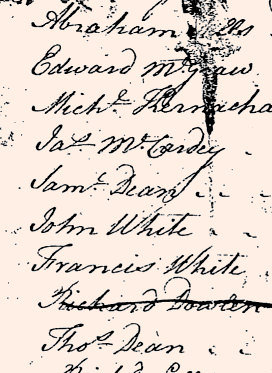 Abraham
Edward McGraw
Michl.
Jas. McCardey
Saml. Dean
John White
Francis White
Richard Dowlen
Thos. Dean